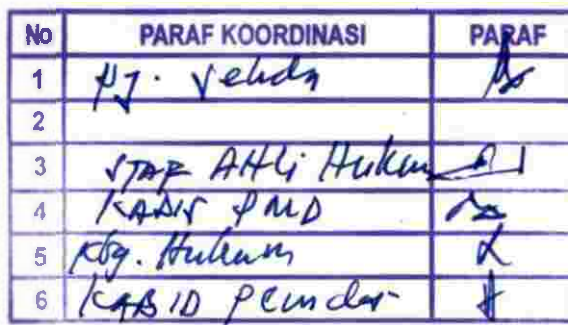 No PARAF KOORDINASI PARAF
1 Pj. Sekda
2
3 STAF AHLi Hukum
4 KADIS PMD
5 Kbg. Hukum
6 KABID Pemdes